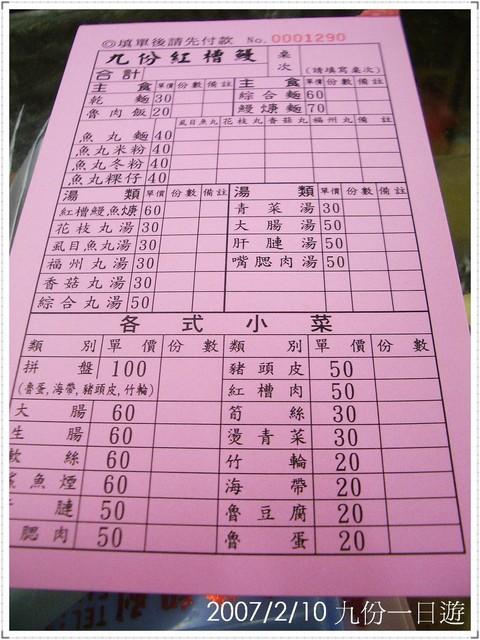 ◎填單後請先付款 No. 0001290
九份紅槽鰻 桌次
合計 (請填寫桌次)
主食 單價 份數 備註 主食 單價 份數 備註
乾麵 30 綜合麵 60
魯肉飯 20 鰻焿麵 70
虱目魚丸 花枝丸 香菇丸 福州丸 備註
魚丸麵 40
魚丸米粉 40
魚丸冬粉 40
魚丸粿仔 40
湯類 單價 份數 備註 湯類 單價 份數 備註
紅槽鰻魚焿 60 青菜湯 30
花枝丸湯 30 大腸湯 50
虱目魚丸湯 30 肝膧湯 50
福州丸湯 30 嘴腮肉湯 50
香菇丸湯 30
綜合丸湯 50
各式小菜
類別 單價 份數 類別 單價 份數
拼盤 100 豬頭皮 50
(魯蛋,海帶,豬頭皮,竹輪) 紅槽肉 50
大腸 60 筍絲 30
生腸 60 燙青菜 30
軟絲 60 竹輪 20
魚煙 60 海帶 20
膧 50 魯豆腐 20
腮肉 50 魯蛋 20
2007/2/10 九份一日遊